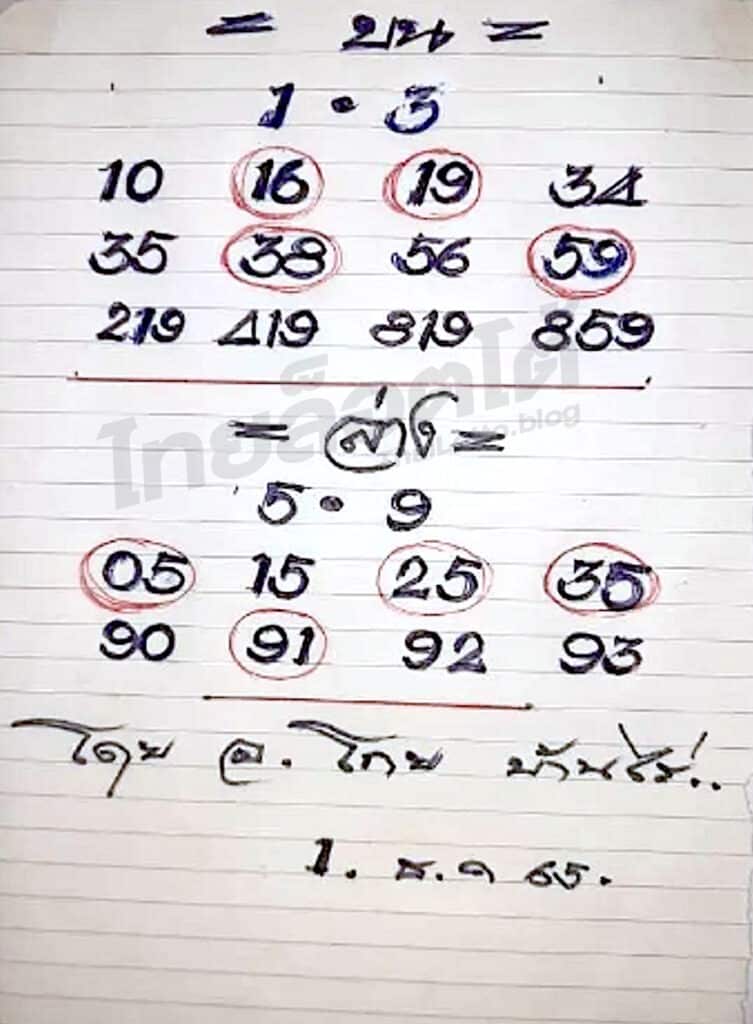 = บน =
1 • 3
10 16 19 34
35 38 56 59
219 419 819 859
ไทยล็อตโต้
ThaiLotto.blog
= ล่าง =
5 • 9
05 15 25 35
90 91 92 93
โดย อ. โกย บ้านไร่..
1. ธ.ค 65.